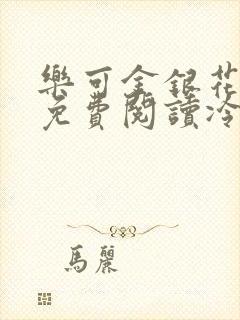 樂可金銀花
免費閱讀冷
馬麗